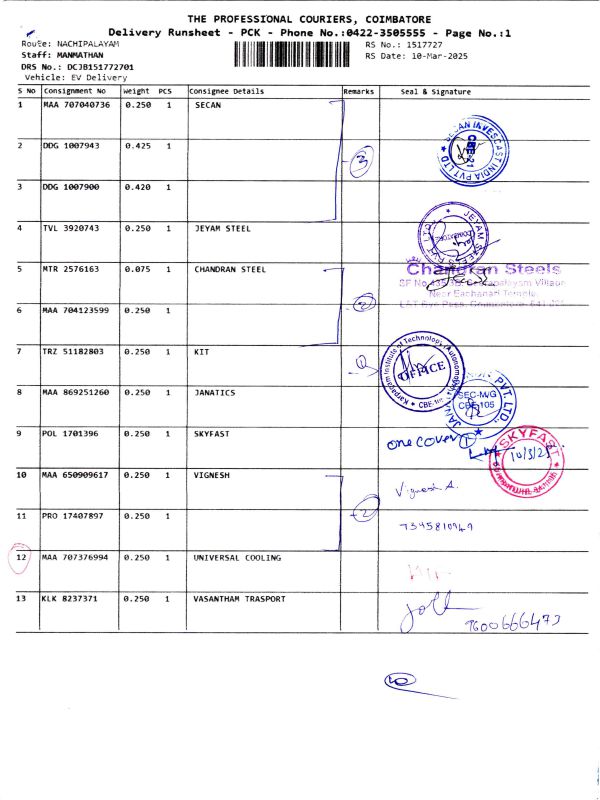 THE PROFESSIONAL COURIERS, COIMBATORE
Delivery Runsheet - PCK - Phone No.:0422-3505555 - Page No.:1
Route: NACHIPALAYAM
RS No.: 1517727
Staff: MANMATHAN
RS Date: 10-Mar-2025
DRS No.: DCJB151772701
Vehicle: EV Delivery
S No Consignment No Weight PCS Consignee Details Remarks Seal & Signature
1 MAA 707040736 0.250 1 SECAN
SECAN INVESCAST INDIA PVT LTD CBE-21
2 DDG 1007943 0.425 1
3
3 DDG 1007900 0.420 1
4 TVL 3920743 0.250 1 JEYAM STEEL
JEYAM STEELS PVT LTD
5 MTR 2576163 0.075 1 CHANDRAN STEEL
Chandran Steels
Near Eachanari Temple
2
6 MAA 704123599 0.250 1
7 TRZ 51182803 0.250 1 KIT
1
Karpagam Institute of Technology (Autonomous) OFFICE CBE-105
8 MAA 869251260 0.250 1 JANATICS
PVT. LTD. SEC-M/G CBE-105
9 POL 1701396 0.250 1 SKYFAST
one cover 1
SKYFAST
10/3/25
10 MAA 650909617 0.250 1 VIGNESH
Vignesh A.
2
11 PRO 17407897 0.250 1
7345810949
12 MAA 707376994 0.250 1 UNIVERSAL COOLING
13 KLK 8237371 0.250 1 VASANTHAM TRASPORT
9600666473
10